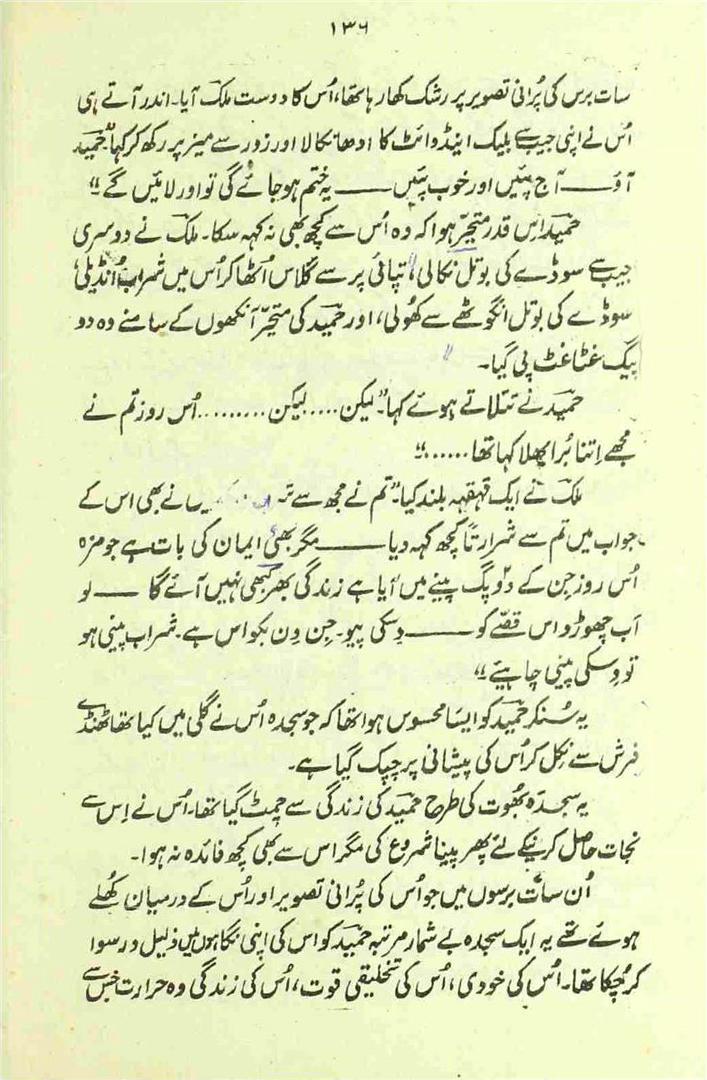 ۱۳۶
سات برس کی پُرانی تصویر پر رشک کھا رہا تھا، اُس کا دوست ملک آیا۔ اندر آتے ہی
اُس نے اپنی جیب سے بلیک اینڈ وائٹ کا ادھا نکالا اور زور سے میز پر رکھ کر کہا "حمید
آؤ —— آج پئیں اور خوب پئیں —— یہ ختم ہو جائے گی تو اور لائیں گے"
حمید اس قدر متحیّر ہوا کہ وہ اُس سے کچھ بھی نہ کہہ سکا۔ ملک نے دوسری
جیب سے سوڈے کی بوتل نکالی، تپائی پر سے گلاس اُٹھا کر اُس میں شراب اُنڈیلی
سوڈے کی بوتل انگوٹھے سے کھولی، اور حمید کی متحیّر آنکھوں کے سامنے وہ دو
پیگ غٹا غٹ پی گیا۔
حمید نے تتلاتے ہوئے کہا۔ "لیکن ..... لیکن ......... اُس روز تم نے
مجھے اِتنا بُرا بھلا کہا تھا ......"
ملک نے ایک قہقہہ بلند کیا۔ "تم نے مجھ سے نے بھی اس کے
جواب میں تم سے شرارتاً کچھ کہہ دیا —— مگر بھئی ایمان کی بات ہے جو مزہ
اُس روز جِن کے دو پگ پینے میں آیا ہے زندگی بھر کبھی نہیں آئے گا —— لو
اَب چھوڑو اس قصّے کو —— وِسکی پیو۔ جِن وِن بکواس ہے۔ شراب پینی ہو
تو وِسکی پینی چاہیئے"
یہ سُنکر حمید کو ایسا محسوس ہوا تھا کہ جو سجدہ اُس نے گلی میں کیا تھا ٹھنڈے
فرش سے نکل کر اُس کی پیشانی پر چپک گیا ہے۔
یہ سجدہ بھوت کی طرح حمید کی زندگی سے چمٹ گیا تھا۔ اُس نے اِس سے
نجات حاصل کرنیکے لئے پھر پینا شروع کی مگر اس سے بھی کچھ فائدہ نہ ہوا۔
اُن سات برسوں میں جو اُس کی پُرانی تصویر اور اُس کے درمیان کُھلے
ہوئے تھے یہ ایک سجدہ بے شمار مرتبہ حمید کو اس کی اپنی نگاہوں میں ذلیل و رسوا
کر چُکا تھا۔ اُس کی خودی، اُس کی تخلیقی قوت، اُس کی زندگی وہ حرارت جس سے